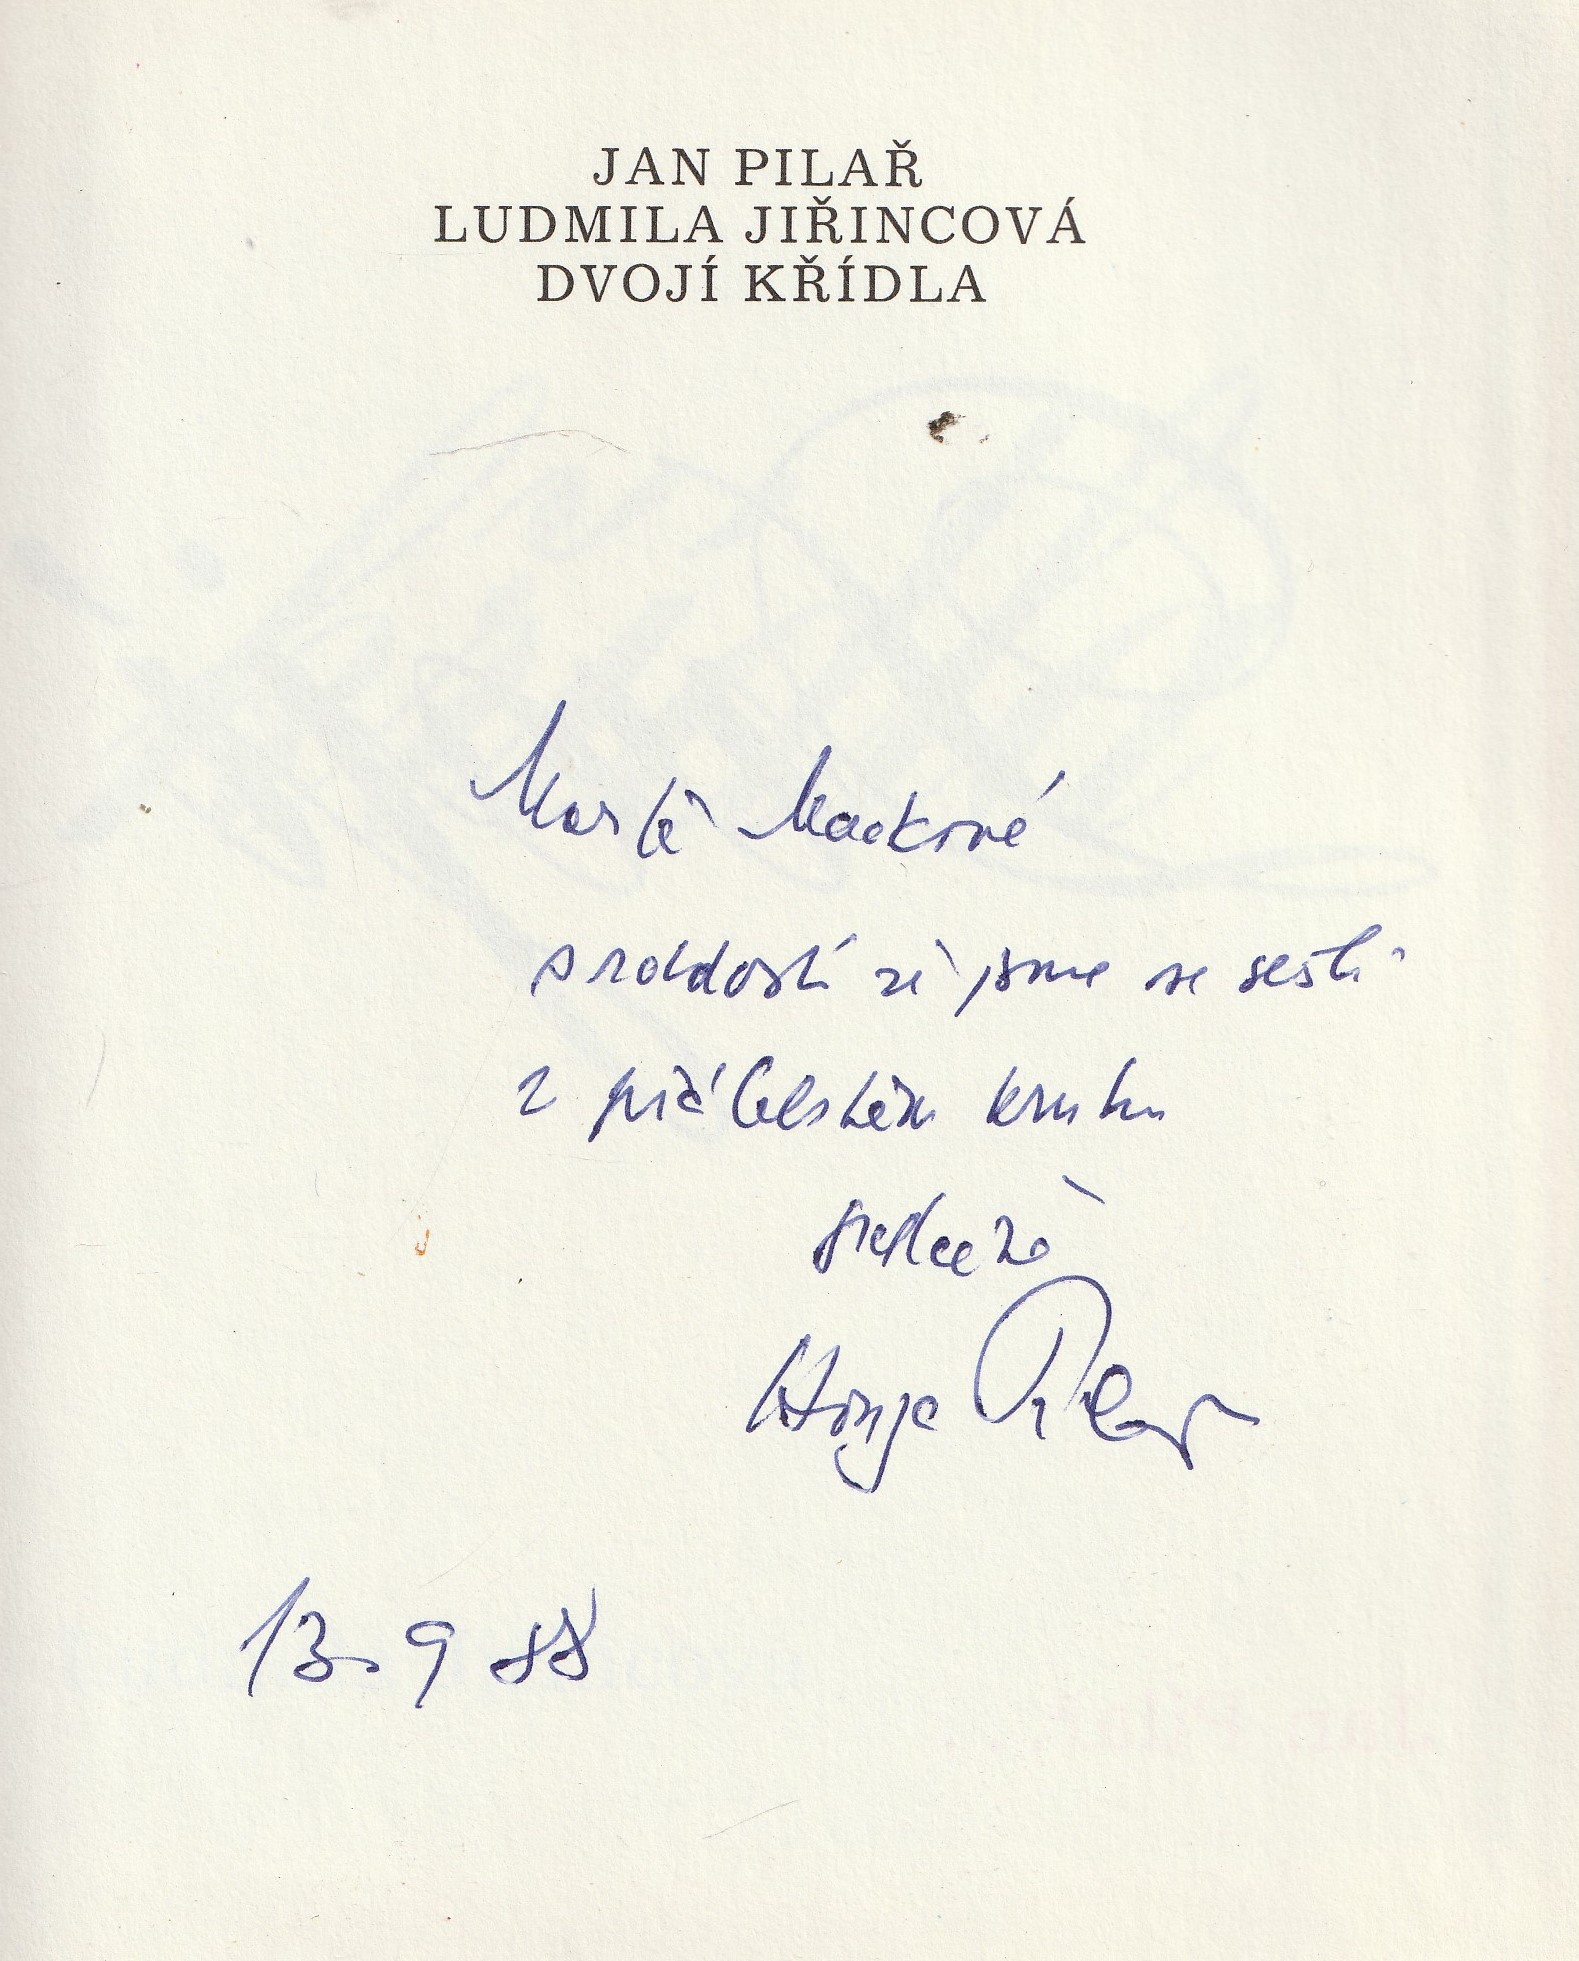 JAN PILAŘ
LUDMILA JIŘINCOVÁ
DVOJÍ KŘÍDLA
Martě Mackové
s radostí že jsme se sešli
v přátelském kruhu
srdečně
Honza Pilař
13. 9 88